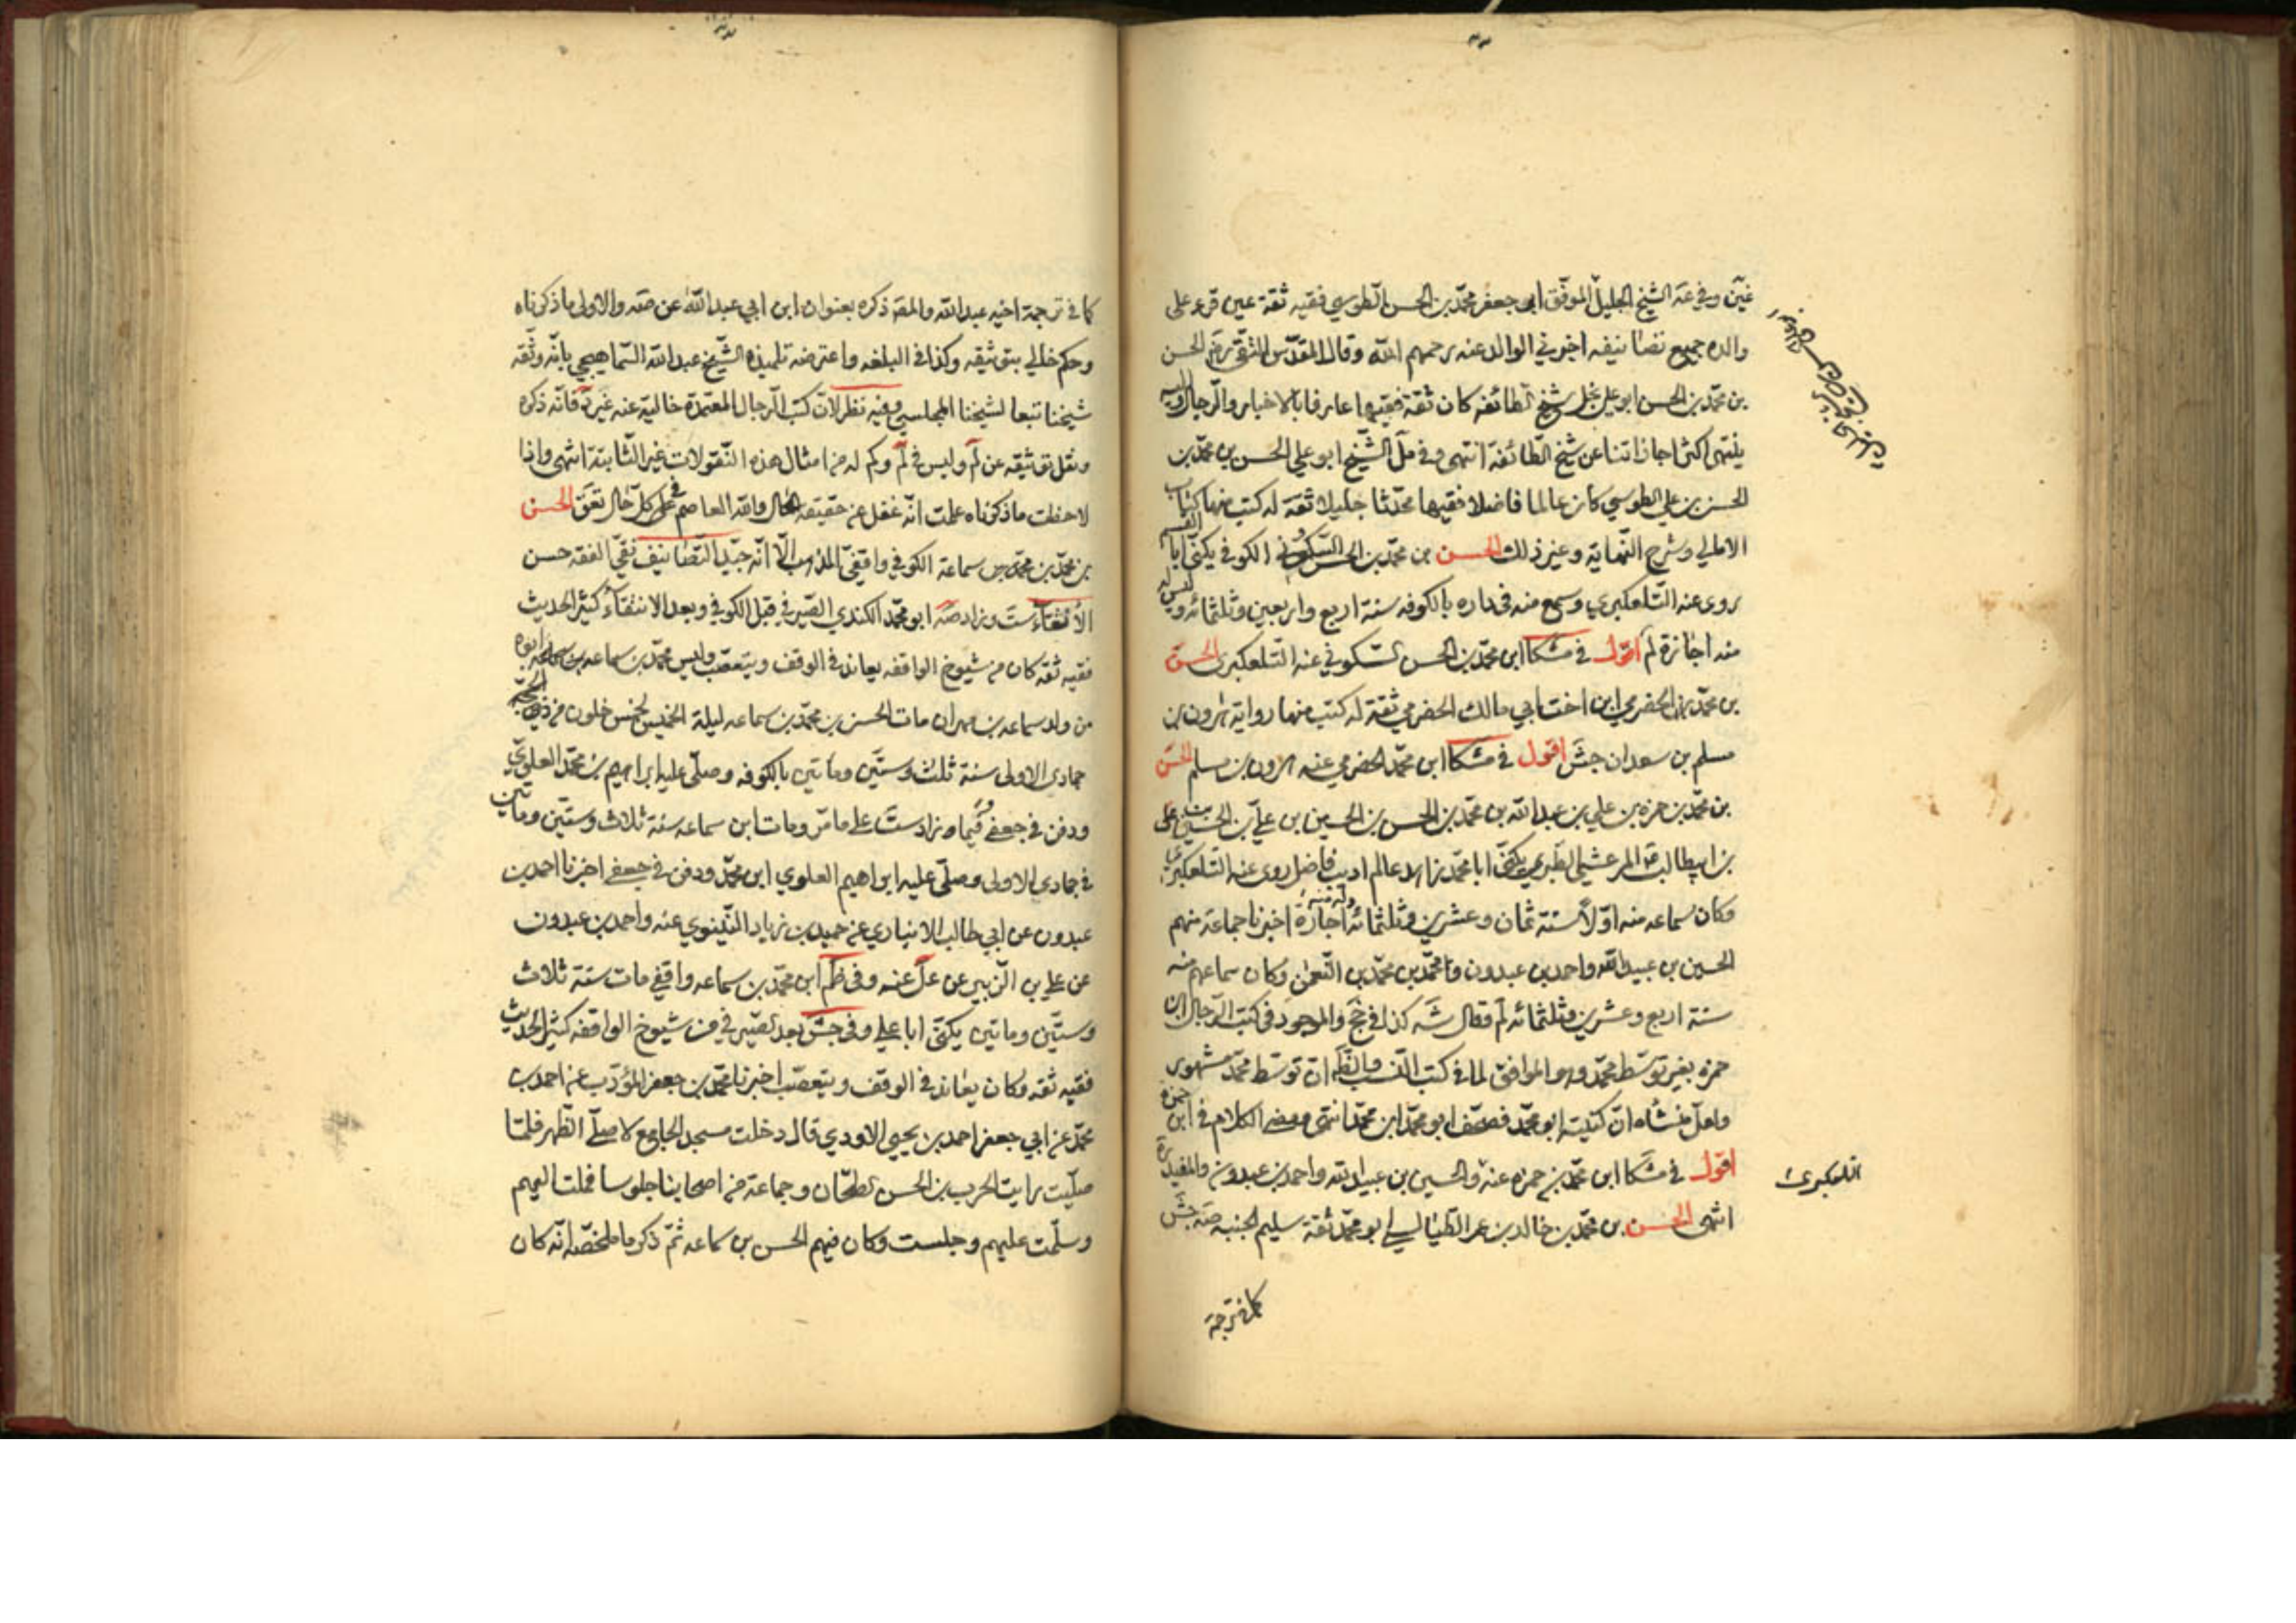 غين وفي عة الشيخ الجليل الموفق ابي جعفر محمد بن الحسن الطوسي فقيه ثقة عين قرء على
والده جميع تصانيفه اخبرني الوالد عنه رحمهم الله وقال المقدس التقي ره الحسن
بن محمد بن الحسن ابو علي نجل شيخ الطائفه كان ثقة فقيها عارفا بالاخبار والرجال واليه
ينتهي اكثر اجازاتنا عن شيخ الطائفة انتهى وفي مل الشيخ ابو علي الحسن بن محمد بن
الحسن بن علي الطوسي كان عالما فاضلا فقيها محدثا جليلا ثقة له كتب منها كتاب
الامالي وشرح النهاية وغير ذلك الحسن بن محمد بن الحسن السكوني الكوفي يكنى ابا القسم
روى عنه التلعكبري وسمع منه في داره بالكوفه سنة اربع واربعين وثلثمائه وليس له
منه اجازة لم اقول في مشكا ابن محمد بن الحسن السكوني عنه التلعكبري الحسن
بن محمد الحضرمي ابن اخت ابي مالك الحضرمي ثقة له كتب منها رواية هرون بن
مسلم بن سعدان جش اقول في مشكا ابن محمد الحضرمي عنه هرون بن مسلم الحسن
بن محمد بن حمزه بن علي بن عبد الله بن محمد بن الحسن بن الحسين بن علي بن الحسين بن علي
بن ابيطالب المرعشي الطبري يكنى ابا محمد زاهد عالم اديب فاضل روى عنه التلعكبري
وكان سماعه منه اولا سنة ثمان وعشرين وثلثمائه وله منه اجازة اخبرنا جماعة منهم
الحسين بن عبيد الله واحمد بن عبدون ومحمد بن محمد بن النعمن وكان سماعهم منه
سنة اربع وعشرين وثلثمائه لم وقال شه كذا في جخ والموجود في كتب الرجال ابن
حمزه بغير توسط محمد وهو الموافق لما في كتب النسب ان توسط محمد مشهور
ولعل منشاه ان كنيته ابو محمد فصحف ابو محمد ابن محمد انتهى ومضى الكلام في ابن حمزه
اقول في مشكا ابن محمد بن حمزه عنه والحسين بن عبيد الله واحمد بن عبدون والمفيد ره
التلعكبري
انتهى الحسن بن محمد بن خالد بن عمر الطيالسي ابو محمد ثقة سليم الجنبه صه جش
كما في ترجمة
كما في ترجمة اخيه عبد الله والمقد ذكره بعنوان ابن ابي عبد الله عن صه والاولى ما ذكرناه
وحكم خالي بتوثيقه وكذا في البلغه واعترضه تلميذه الشيخ عبد الله السماهيجي بانه وثقه
شيخنا تبعا لشيخنا المجلسي وفيه نظر لان كتب الرجال المعتمدة خالية عنه غير د فانه ذكره
ونقل توثيقه عن لم وليس في لم وكم له من امثال هذه النقولات غير الثابتة انتهى واذا
لاحظت ما ذكرناه علمت انه غفل عن حقيقة الحال والله العاصم على كل حال تعق الحسن
بن محمد بن سماعة الكوفي واقفي المذهب الا انه جيد التصانيف نقي الفقه حسن
الانتقاء ست وزاد صه ابو محمد الكندي الصيرفي قبل الكوفي وبعد الانتقاء كثير الحديث
فقيه ثقه كان من شيوخ الواقفه يعاند في الوقف ويتعصب وليس محمد بن سماعه ابوه
من ولد سماعه بن مهران مات الحسن بن محمد بن سماعه ليلة الخميس لخمس خلون من
جمادي الاولى سنة ثلث وستين ومأتين بالكوفه وصلى عليه ابراهيم بن محمد العلوي
ودفن في جعفي وزاد ست على ما مر ومات ابن سماعه سنة ثلاث وستين ومأتين
في جمادي الاولى وصلى عليه ابراهيم العلوي ابن محمد ودفن في جعفي اخبرنا احمد بن
عبدون عن ابي طالب الانباري عن حميد بن زياد النينوي عنه واحمد بن عبدون
عن علي بن الزبير عن عل عنه وفي ظم ابن محمد بن سماعه واقفي مات سنة ثلاث
وستين ومأتين يكنى ابا علي وفي جش بعد الصيرفي من شيوخ الواقفه كثير الحديث
فقيه ثقه وكان يعاند في الوقف ويتعصب اخبرنا محمد بن جعفر المؤدب عن احمد بن
محمد عن ابي جعفر احمد بن يحيى الاودي قال دخلت مسجد الجامع لاصلي الظهر فلما
صليت رايت الحرب بن الحسن الطحان وجماعة من اصحابنا جلوسا فملت اليهم
وسلمت عليهم وجلست وكان فيهم الحسن بن سماعه ثم ذكر ما ملخصه انه كان